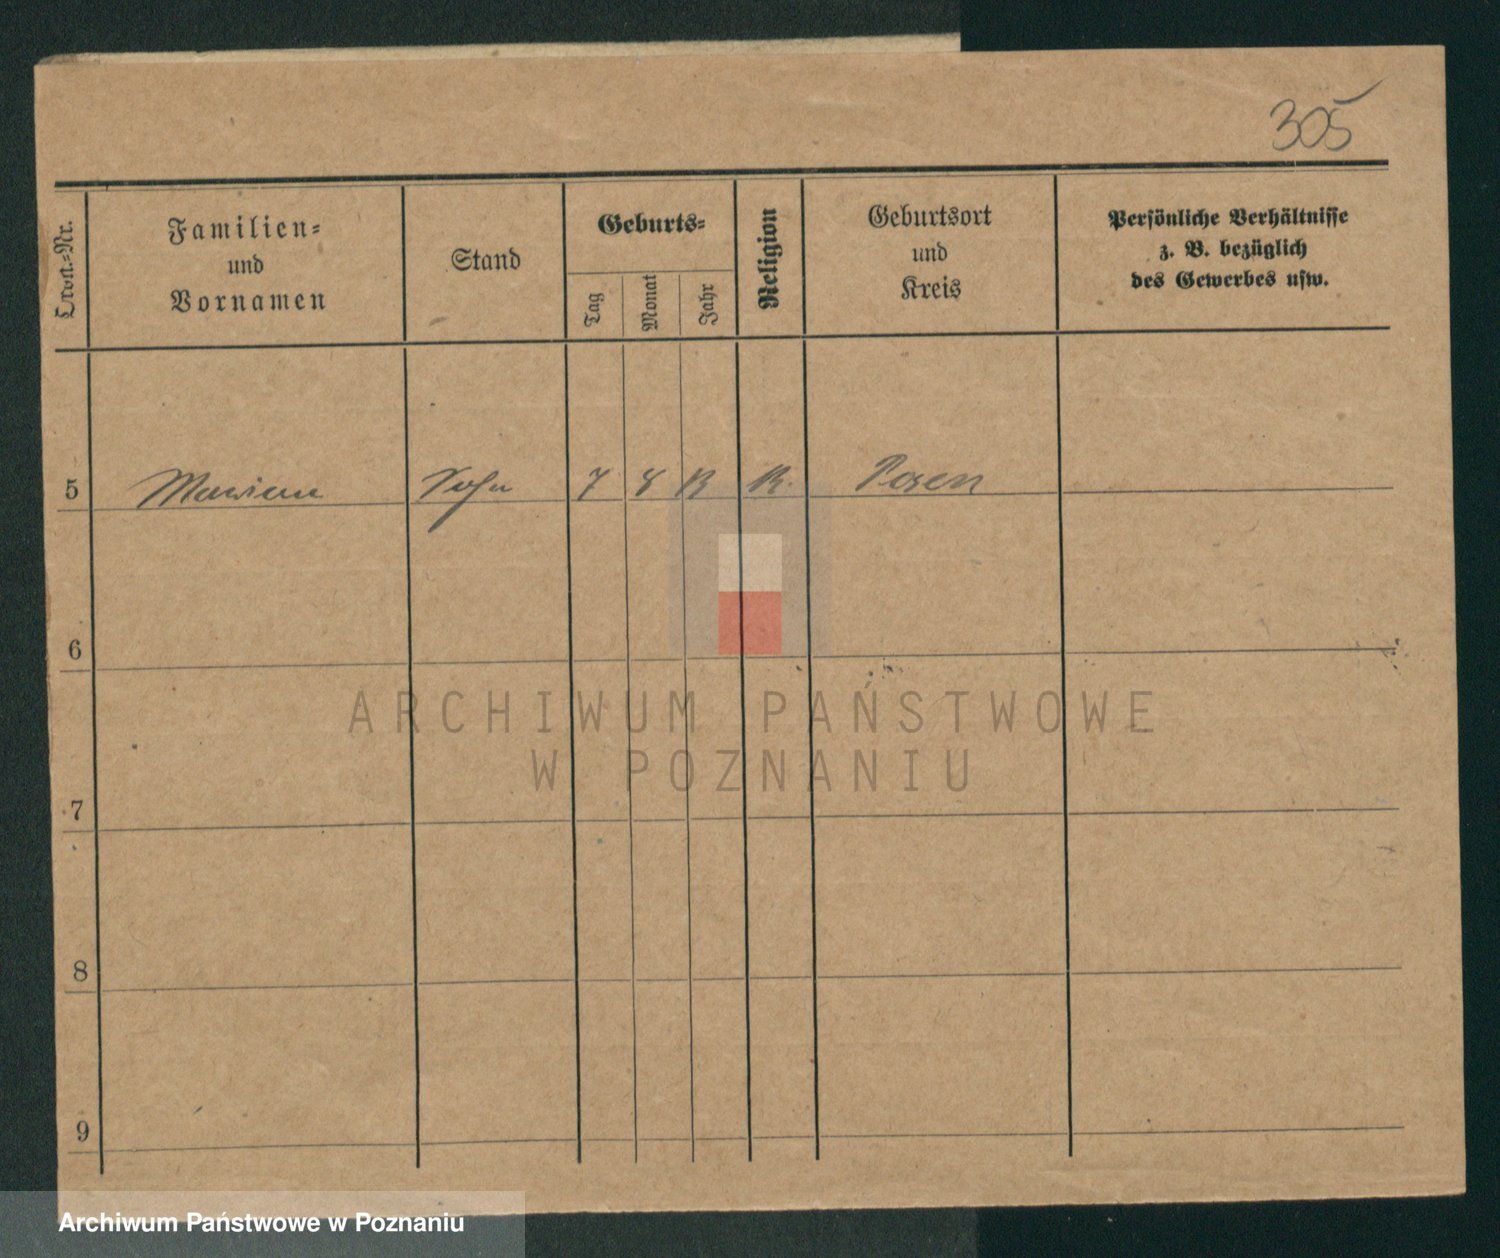 305
Ordn.-Nr.
Familien-
und
Vornamen
Stand
Geburts-
Tag
Monat
Jahr
Religion
Geburtsort
und
Kreis
Persönliche Verhältnisse
z. B. bezüglich
des Gewerbes usw.
5 Marian Sohn 7 8 K. Posen
6
ARCHIWUM PAŃSTWOWE
W POZNANIU
7
8
9
Archiwum Państwowe w Poznaniu